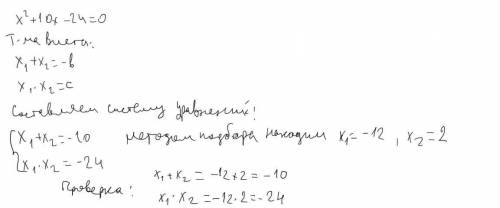 x²+10x-24=0
Т-ма Виета:
x₁+x₂=-b
x₁·x₂=c
Составляем систему уравнений!
{x₁+x₂=-10 методом подбора находим x₁=-12, x₂=2
x₁·x₂=-24
Проверка: x₁+x₂=-12+2=-10
x₁·x₂=-12·2=-24